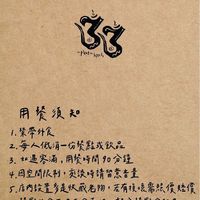 用餐須知
1. 禁帶外食
2. 每人低消一份餐點或飲品
3. 如遇客滿，用餐時間90分鐘
4. 因空間歐利，交談時請留意音量
5. 店內設置多是收藏老物，若有損壞需照價賠償